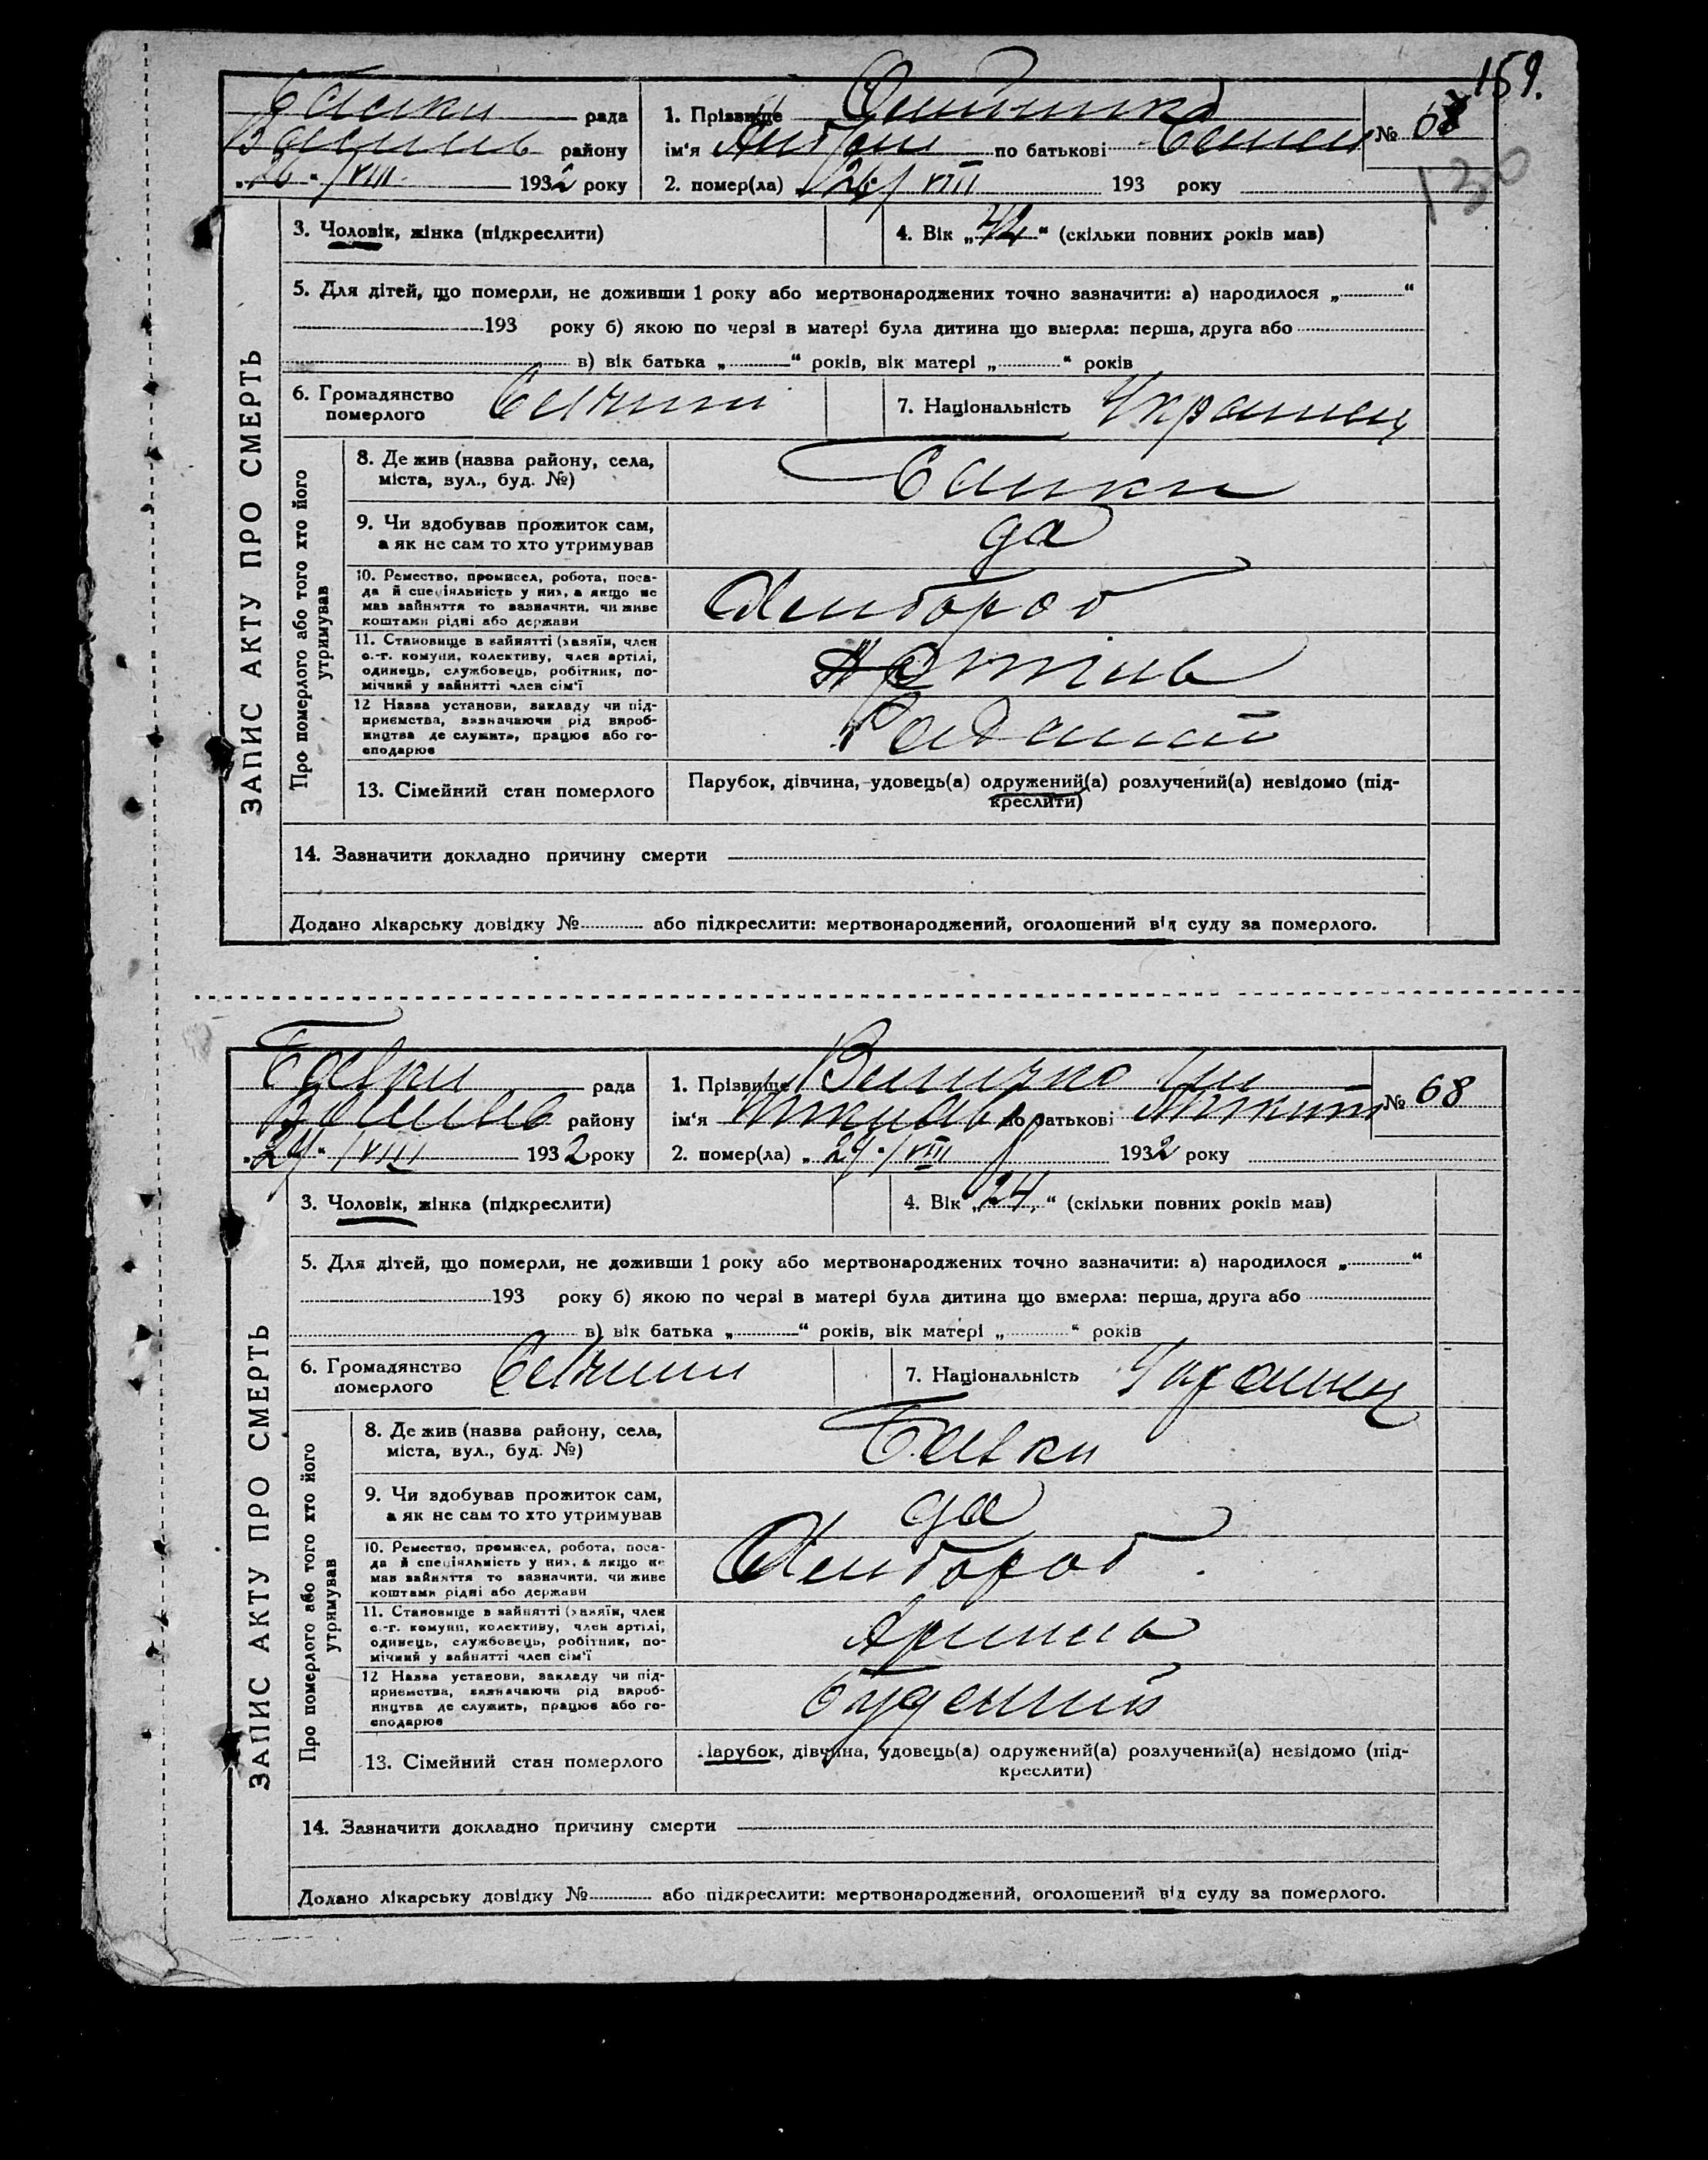 159.
рада
1. Прізвище
№ 68
району
ім'я Антон по батькові Семен
130
„26“ /VIII 1932 року
2. помер(ла) „26“/ VIII 193 року
3. Чоловік, жінка (підкреслити)
4. Вік „42“ (скільки повних років мав)
5. Для дітей, що померли, не доживши 1 року або мертвонароджених точно зазначити: а) народилося „ “
193 року б) якою по черзі в матері була дитина що вмерла: перша, друга або
в) вік батька „ “ років, вік матері „ “ років
6. Громадянство
померлого
7. Національність Украинец
ЗАПИС АКТУ ПРО СМЕРТЬ
Про померлого або того хто його
утримував
8. Де жив (назва району, села,
міста, вул., буд. №)
9. Чи здобував прожиток сам,
а як не сам то хто утримував
да
10. Ремество, промисел, робота, поса-
да й спеціяльність у них, а якщо не
мав зайняття то зазначити, чи живе
коштами рідні або держави
Хлибороб
11. Становище в зайнятті (хазяїн, член
с.-г. комуни, колективу, член артілі,
одинець, службовець, робітник, по-
мічний у зайнятті член сім'ї
Артіль
12 Назва установи, закладу чи під-
приємства, зазначаючи рід вироб-
ництва де служить, працює або го-
сподарює
13. Сімейний стан померлого
Парубок, дівчина, удовець(а) одружений(а) розлучений(а) невідомо (під-
креслити)
14. Зазначити докладно причину смерти
Додано лікарську довідку № або підкреслити: мертвонароджений, оголошений від суду за померлого.
Баевки рада
1. Прізвище
№ 68
району
ім'я по батькові Микит
„27“ /VIII 1932 року
2. помер(ла) „27“/VIII 1932 року
3. Чоловік, жінка (підкреслити)
4. Вік „24“ (скільки повних років мав)
5. Для дітей, що померли, не доживши 1 року або мертвонароджених точно зазначити: а) народилося „ “
193 року б) якою по черзі в матері була дитина що вмерла: перша, друга або
в) вік батька „ “ років, вік матері „ “ років
6. Громадянство
померлого
7. Національність Украинец
ЗАПИС АКТУ ПРО СМЕРТЬ
Про померлого або того хто його
утримував
8. Де жив (назва району, села,
міста, вул., буд. №)
Баевки
9. Чи здобував прожиток сам,
а як не сам то хто утримував
да
10. Ремество, промисел, робота, поса-
да й спеціяльність у них, а якщо не
мав зайняття то зазначити, чи живе
коштами рідні або держави
Хлибороб
11. Становище в зайнятті (хазяїн, член
с.-г. комуни, колективу, член артілі,
одинець, службовець, робітник, по-
мічний у зайнятті член сім'ї
Артиль
12 Назва установи, закладу чи під-
приємства, зазначаючи рід вироб-
ництва де служить, працює або го-
сподарює
Буденний
13. Сімейний стан померлого
Парубок, дівчина, удовець(а) одружений(а) розлучений(а) невідомо (під-
креслити)
14. Зазначити докладно причину смерти
Додано лікарську довідку № або підкреслити: мертвонароджений, оголошений від суду за померлого.